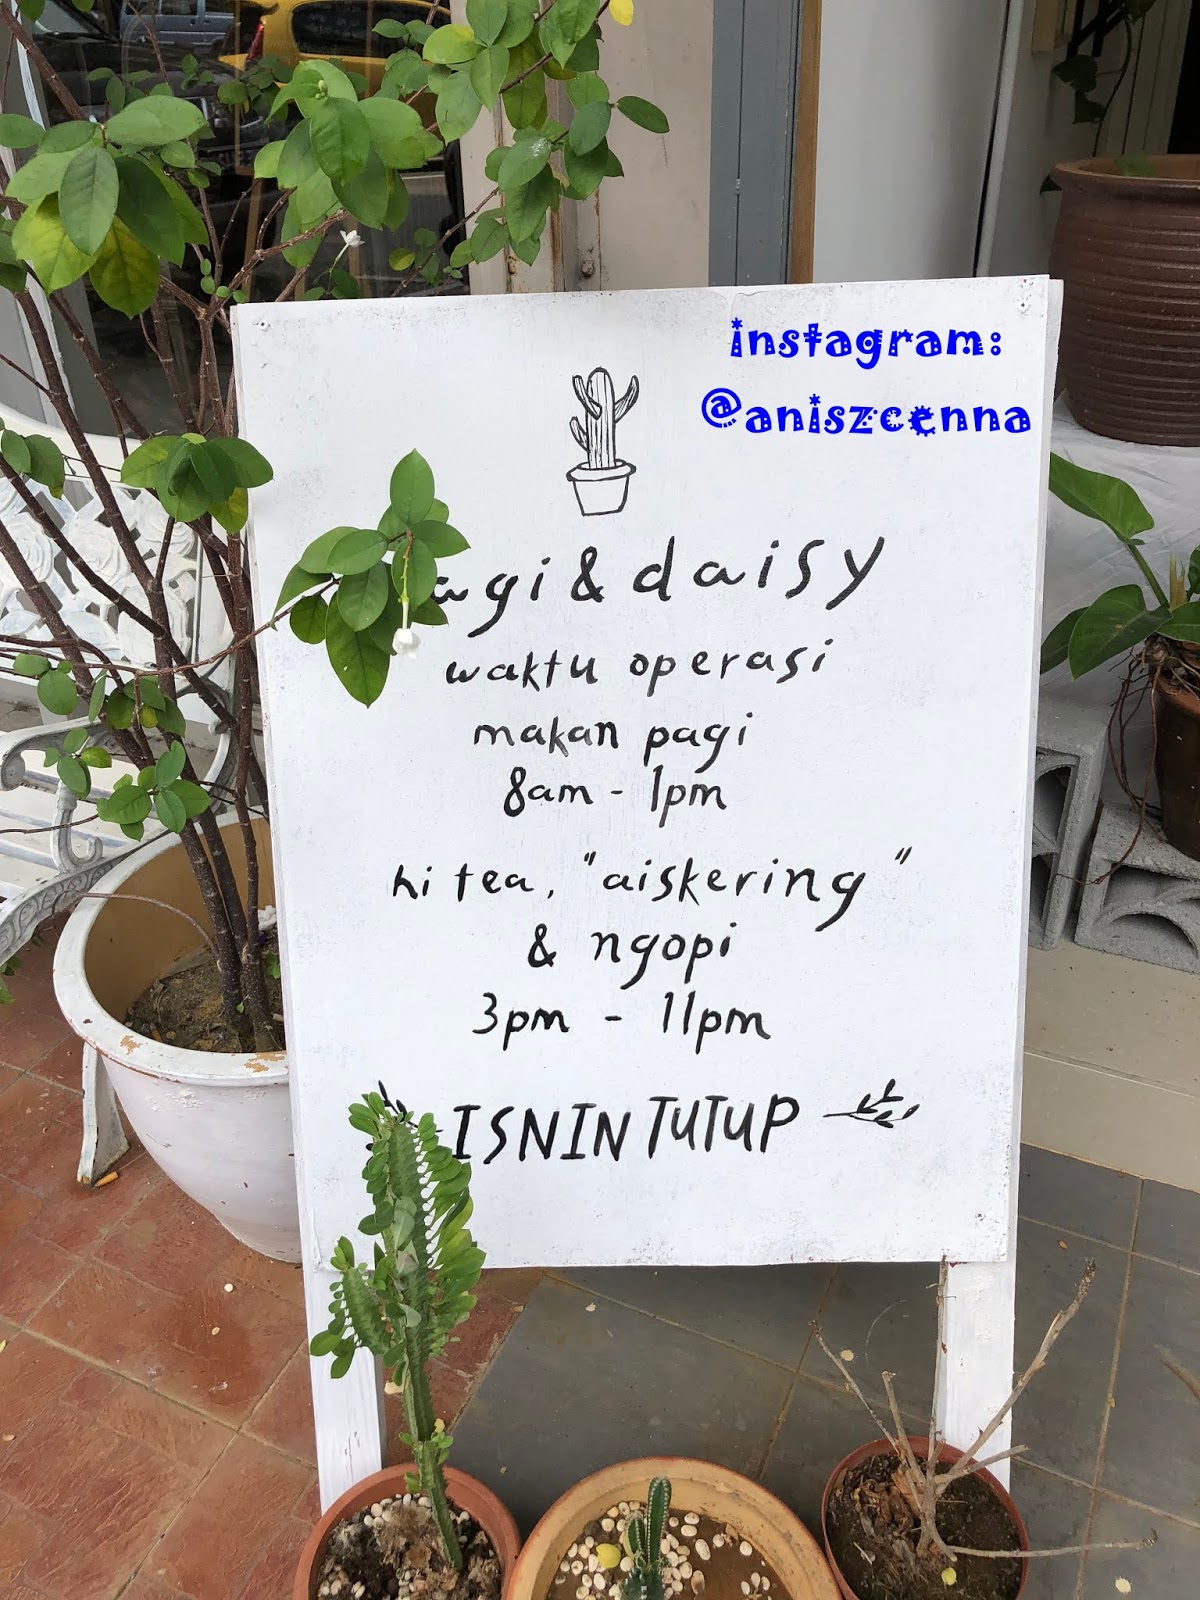 instagram:
@aniszcenna
& daisy
waktu operasi
makan pagi
8am - 1pm
hi tea, "aiskering"
& ngopi
3pm - 11pm
ISNIN TUTUP